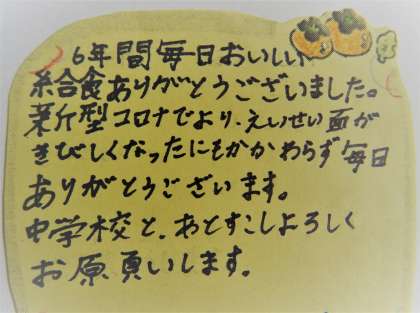 6年間毎日おいしい
給食ありがとうございました。
新型コロナでより、えいせい面が
きびしくなったにもかかわらず毎日
ありがとうございます。
中学校と、あとすこしよろしく
お原頁いします。